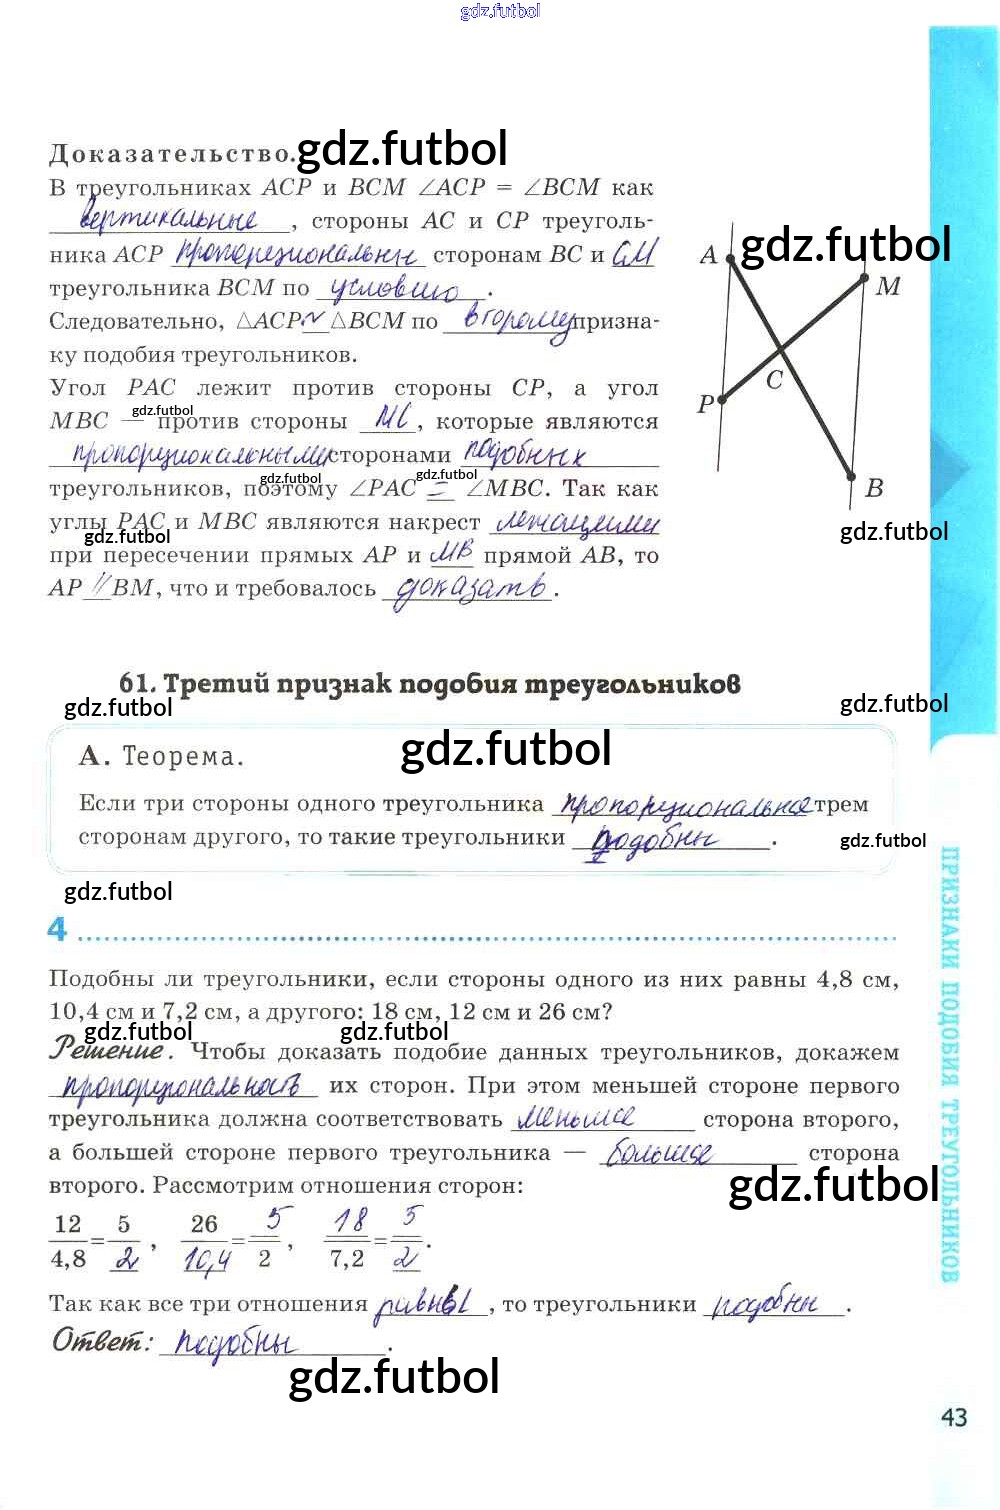 gdz.futbol
Доказательство. gdz.futbol
В треугольниках ACP и BCM ∠ACP = ∠BCM как
вертикальные, стороны AC и CP треуголь-
ника ACP пропорциональны сторонам BC и CM
треугольника BCM по условию.
Следовательно, △ACP ~ △BCM по второму призна-
ку подобия треугольников.
Угол PAC лежит против стороны CP, а угол
MBC — против стороны MC, которые являются
gdz.futbol
пропорциональными сторонами подобных
gdz.futbol gdz.futbol
треугольников, поэтому ∠PAC = ∠MBC. Так как
углы PAC и MBC являются накрест лежащими
gdz.futbol
при пересечении прямых AP и MB прямой AB, то
AP // BM, что и требовалось доказать.
gdz.futbol
A
M
C
P
B
gdz.futbol
61. Третий признак подобия треугольников
gdz.futbol gdz.futbol
А. Теорема. gdz.futbol
Если три стороны одного треугольника пропорциональна трем
сторонам другого, то такие треугольники подобны.
gdz.futbol
gdz.futbol
4
Подобны ли треугольники, если стороны одного из них равны 4,8 см,
10,4 см и 7,2 см, а другого: 18 см, 12 см и 26 см?
gdz.futbol gdz.futbol
Решение. Чтобы доказать подобие данных треугольников, докажем
пропорциональность их сторон. При этом меньшей стороне первого
треугольника должна соответствовать меньшая сторона второго,
а большей стороне первого треугольника — большая сторона
второго. Рассмотрим отношения сторон:
gdz.futbol
12/4,8 = 5/2, 26/10,4 = 5/2, 18/7,2 = 5/2.
Так как все три отношения равны, то треугольники подобны.
Ответ: подобны.
gdz.futbol
ПРИЗНАКИ ПОДОБИЯ ТРЕУГОЛЬНИКОВ
43